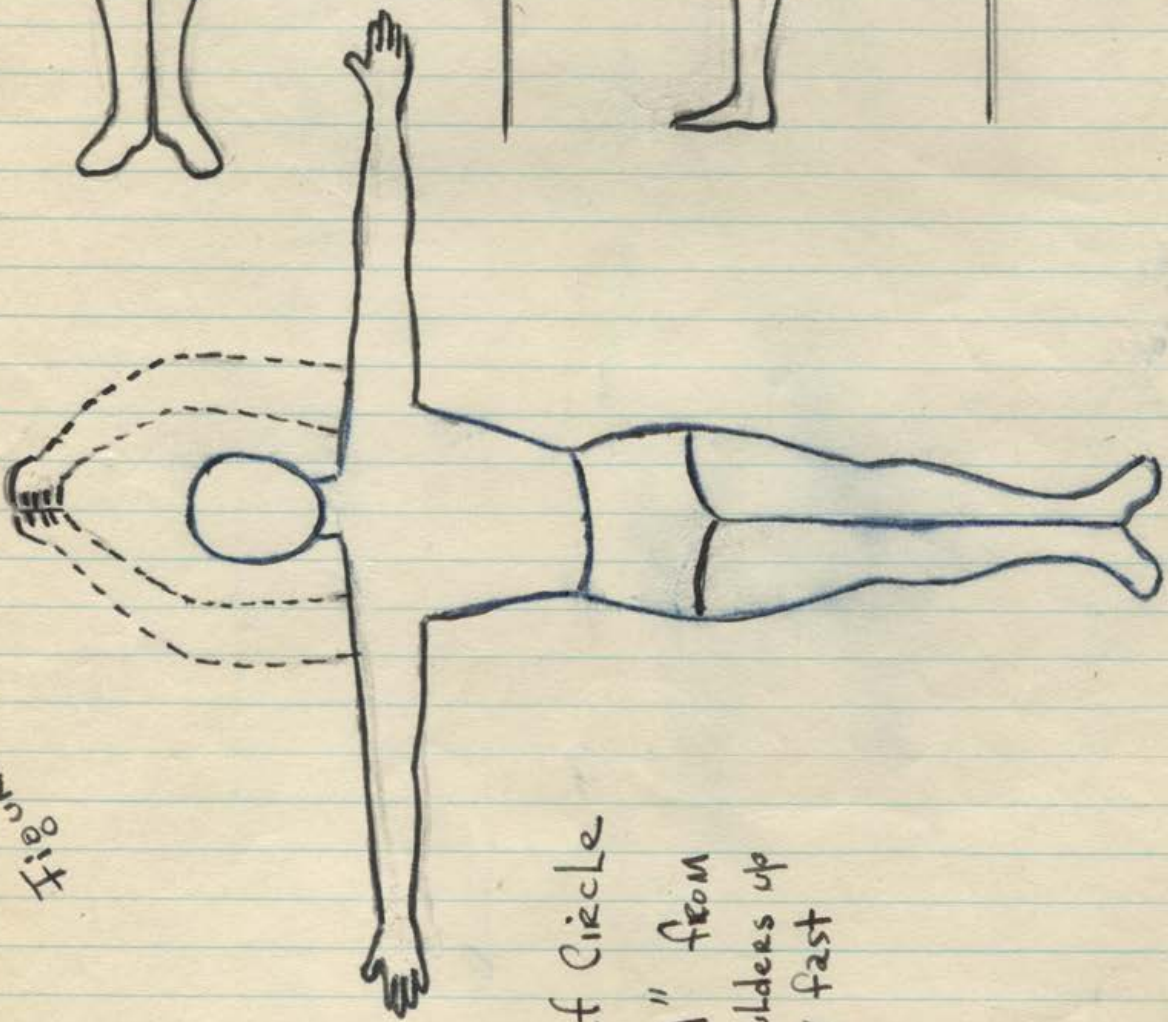 f Circle
" from
lders up
fast